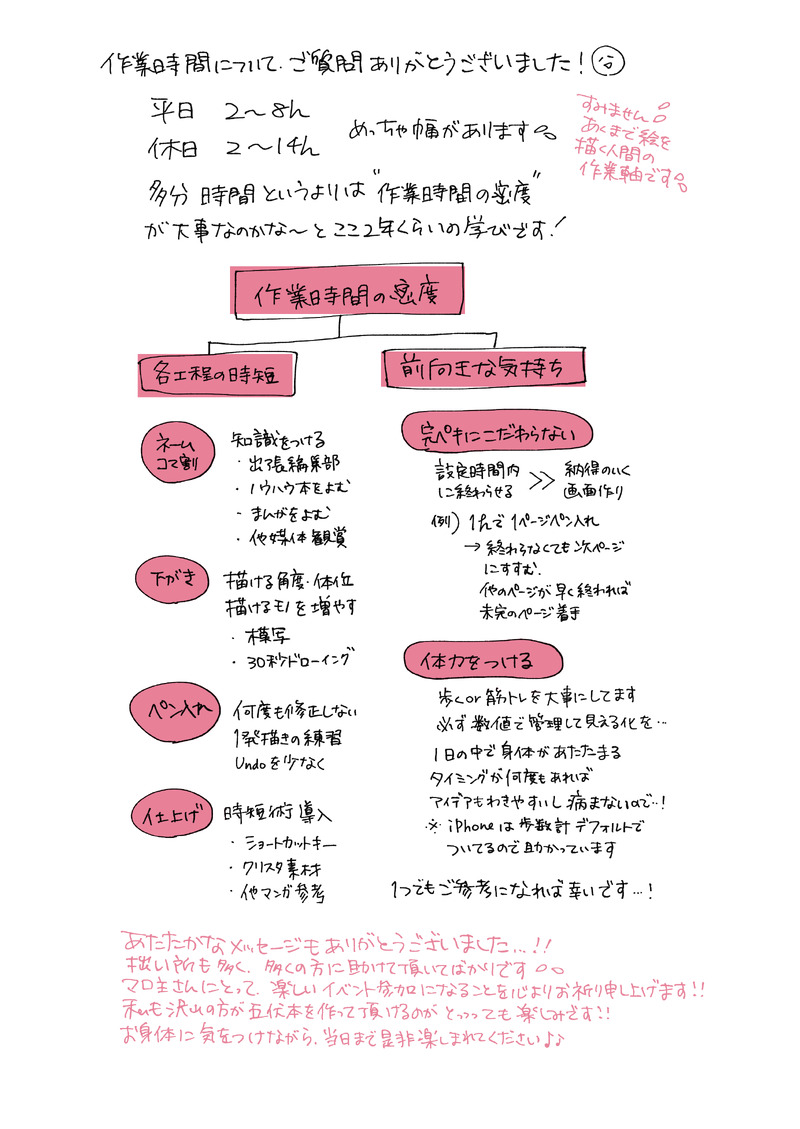 作業時間について、ご質問ありがとうございました!
平日 2〜8h
休日 2〜14h
めっちゃ幅があります
すみません
あくまで絵を
描く人間の
作業軸です
多分 時間というよりは"作業時間の密度"
が大事なのかな〜とここ2年くらいの学びです!
作業時間の密度
各工程の時短
ネーム
コマ割
知識をつける
・出張編集部
・ノウハウ本をよむ
・まんがをよむ
・他媒体観賞
下がき
描ける角度・体位
描けるモノを増やす
・模写
・30秒ドローイング
ペン入れ
何度も修正しない
1発描きの練習
Undoを少なく
仕上げ
時短術導入
・ショートカットキー
・クリスタ素材
・他マンガ参考
前向きな気持ち
完ペキにこだわらない
設定時間内
に終わらせる
>>
納得のいく
画面作り
例) 1hで1ページペン入れ
→ 終わらなくても次ページ
にすすむ.
他のページが早く終われば
未完のページ着手
体力をつける
歩くor筋トレを大事にしてます
必ず数値で管理して見える化を…
1日の中で身体があたたまる
タイミングが何度もあれば
アイデアもわきやすいし病まないので…!
※ iPhoneは歩数計デフォルトで
ついてるので助かっています
1つでもご参考になれば幸いです…!
あたたかなメッセージもありがとうございました…!!
拙い所も多く、多くの方に助けて頂いてばかりです
マロ主さんにとって、楽しいイベント参加になることを心よりお祈り申し上げます!!
私も沢山の方が五伏本を作って頂けるのがとっっっても楽しみです!!
お身体に気をつけながら、当日まで是非楽しまれてください♪♪